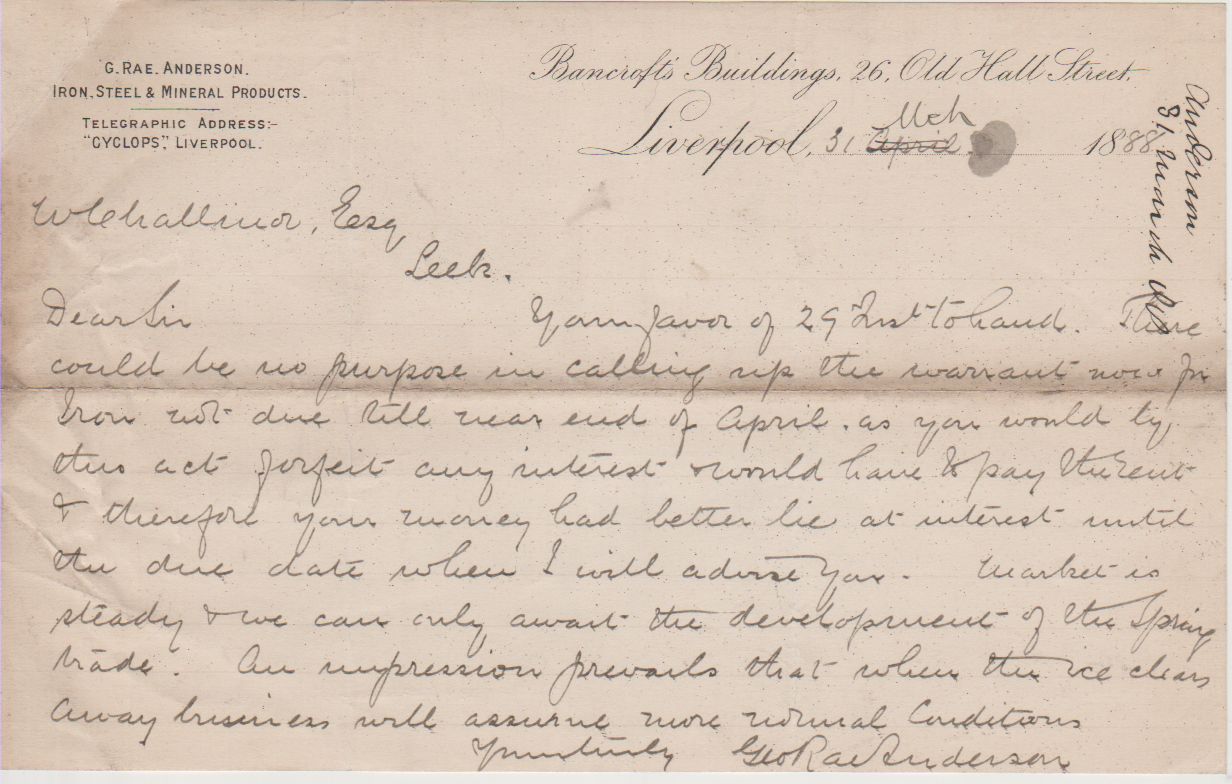 G. RAE. ANDERSON.
IRON, STEEL & MINERAL PRODUCTS.
TELEGRAPHIC ADDRESS:-
"CYCLOPS", LIVERPOOL.
Bancroft's Buildings, 26, Old Hall Street,
Liverpool, 31 April Mch 1888
Anderson
31 March 88
W Challinor, Esq,
Leek.
Dear Sir Your favor of 29 Inst to hand. There
could be no purpose in calling up the warrant now for
Iron not due till near end of April. as you would by
this act forfeit any interest & would have to pay the rent
& therefore your money had better lie at interest until
the due date when I will advise you. Market is
steady & we can only await the development of the Spring
trade. An impression prevails that when the ice clears
away business will assume more normal Conditions
Yours truly Geo Rae Anderson